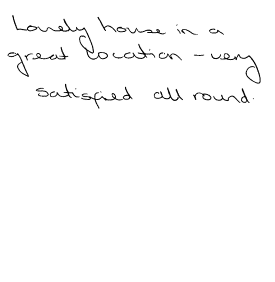 Lovely house in a
great location - very
satisfied all round.